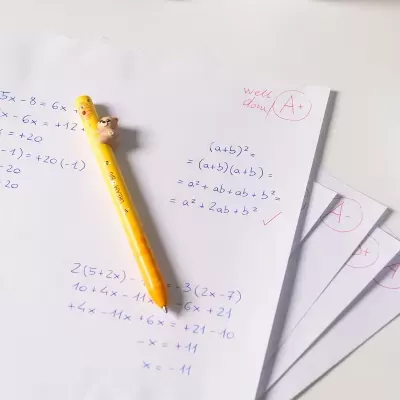 5x - 8 = 6x
x - 6x = +12
= +20
-1) = +20 (-1)
-20
-20
well
done/
A+
(a+b)² =
= (a+b)(a+b) =
= a² + ab + ab + b² =
= a² + 2ab + b²
2(5+2x) - 3(2x-7)
10 + 4x - 11x -6x + 21
+4x - 11x + 6x = +21 - 10
-x = +11
x = -11
A-
B+